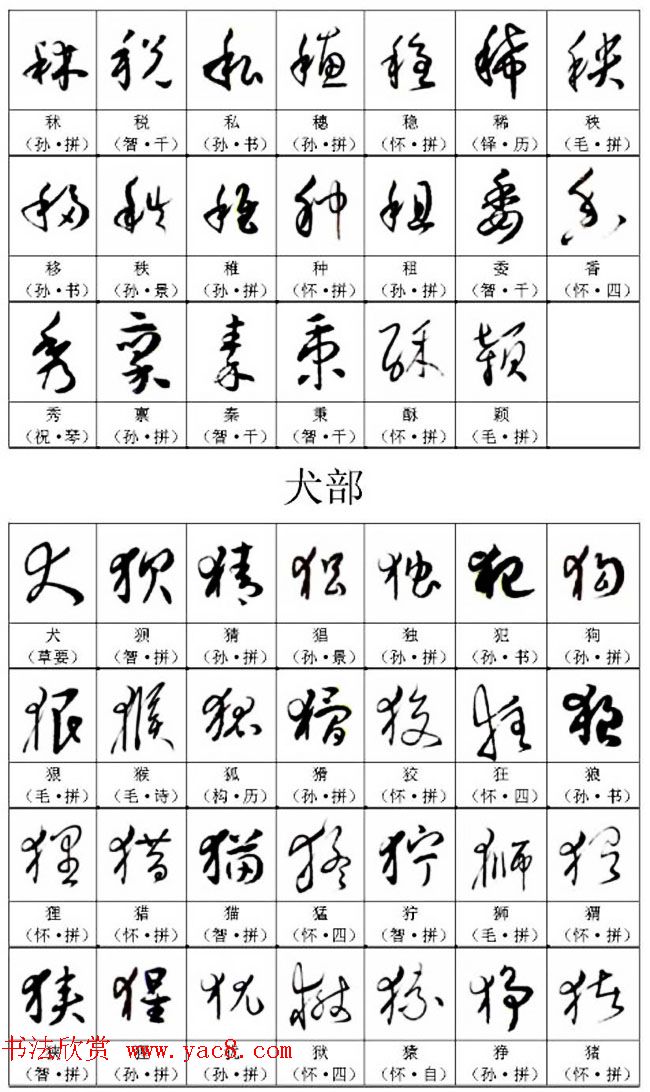 秣 税 私 穗 稳 稀 秧
(孙·拼) (智·千) (孙·书) (孙·拼) (怀·拼) (铎·历) (毛·拼)
移 秩 稚 种 租 委 香
(孙·书) (孙·景) (孙·拼) (怀·拼) (孙·拼) (智·千) (怀·四)
秀 禀 秦 秉 酥 颖
(祝·琴) (孙·拼) (智·千) (智·千) (怀·拼) (毛·拼)
犬部
犬 狈 猜 猖 独 犯 狗
(草要) (智·拼) (孙·拼) (孙·景) (孙·拼) (孙·书) (孙·拼)
狠 猴 狐 猾 狡 狂 狼
(毛·拼) (毛·诗) (构·历) (孙·拼) (怀·拼) (怀·四) (孙·书)
狸 猎 猫 猛 狞 狮 猬
(怀·拼) (怀·拼) (智·拼) (怀·四) (智·拼) (毛·拼) (怀·拼)
狱 猿 狰 猪
书法欣赏 www.yac8.com
(智·拼) (孙·拼) (孙·拼) (怀·四) (怀·自) (孙·拼) (怀·拼)